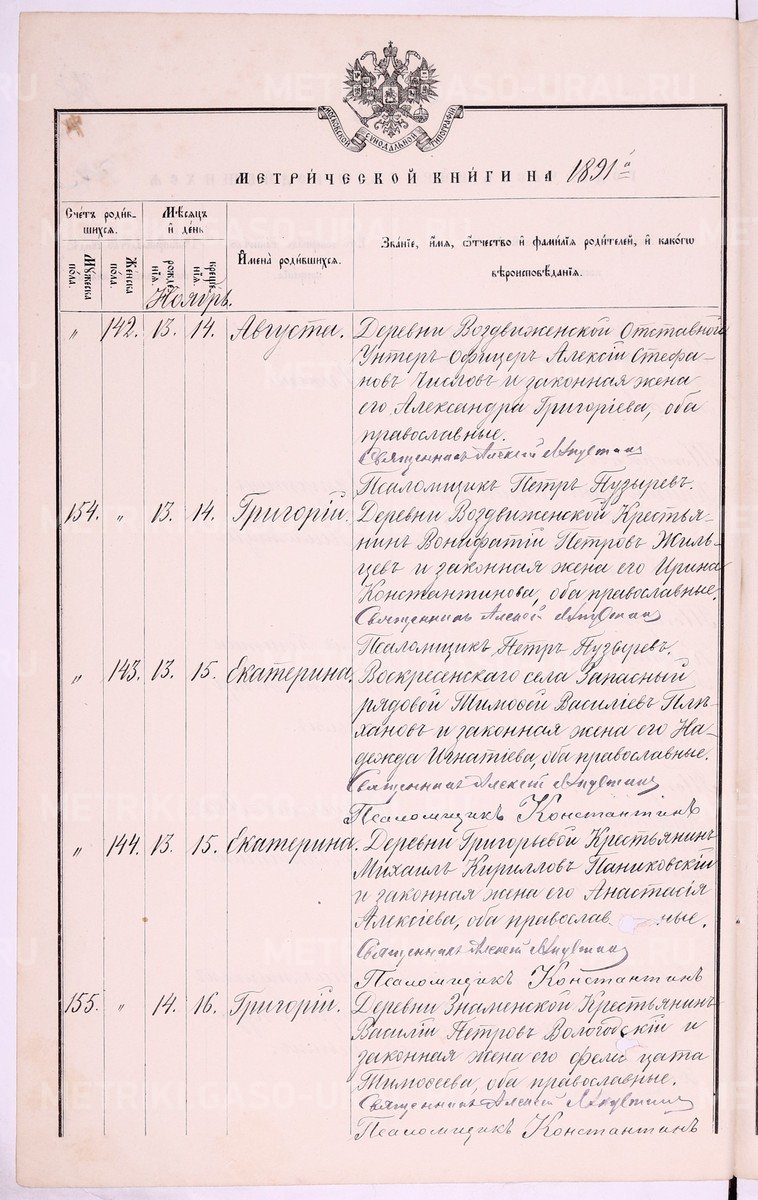 METRIKI.GASO-URAL.RU
МОСКОВСКОЙ СѴНОДАЛЬНОЙ ТИПОГРАФІИ
МЕТРИ́ЧЕСКОЙ КНИ́ГИ НА 1891 й
Сче́тъ роди́в-
шихся.
Мꙋ́жеска по́ла.
Же́нска по́ла.
Мѣ́сяцъ
и҆ де́нь
рожде́нїя.
креще́нїя.
И҆мена̀ роди́вшихся.
Зва́нїе, и҆́мя, ѻ҆́тчество и҆ фами́лїя роди́телей, и҆ како́гѡ
вѣроисповѣ́данїя.
Ноябрь.
„ 142. 13. 14. Августы. Деревни Воздвиженской Отставной
Унтеръ-Офицеръ Алексій Стефа-
новъ Числовъ и законная жена
его Александра Григоріева, оба
православные.
Священникъ Алексій
Псаломщикъ Петръ Пузыревъ.
154. „ 13. 14. Григорій. Деревни Воздвиженской Крестья-
нинъ Вонифатій Петровъ Жиль-
цевъ и законная жена его Ирина
Константинова, оба православные.
Священникъ Алексій
Псаломщикъ Петръ Пузыревъ.
„ 143. 13. 15. Екатерина. Воскресенскаго села Запасный
рядовой Тимоѳей Василіевъ Плѣ-
хановъ и законная жена его На-
дежда Игнатіева, оба православные.
Священникъ Алексій
Псаломщикъ Константинъ
„ 144. 13. 15. Екатерина. Деревни Григорьевой Крестьянинъ
Михаилъ Кирилловъ Паниковскій
и законная жена его Анастасія
Алексіева, оба православные.
Священникъ Алексій
Псаломщикъ Константинъ
155. „ 14. 16. Григорій. Деревни Знаменской Крестьянинъ
Василій Петровъ Вологодскій и
законная жена его Фелицата
Тимоѳеева, оба православные.
Священникъ Алексій
Псаломщикъ Константинъ